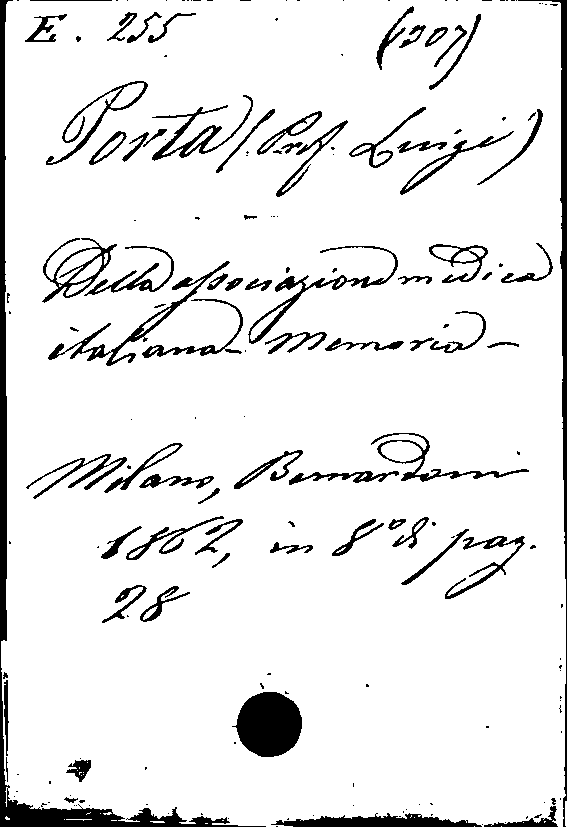 E. 255 (1307)
Porta (Prof. Luigi)
Della associazione medica
italiana - Memoria -
Milano, Bernardoni
1862, in 8° di pag.
28